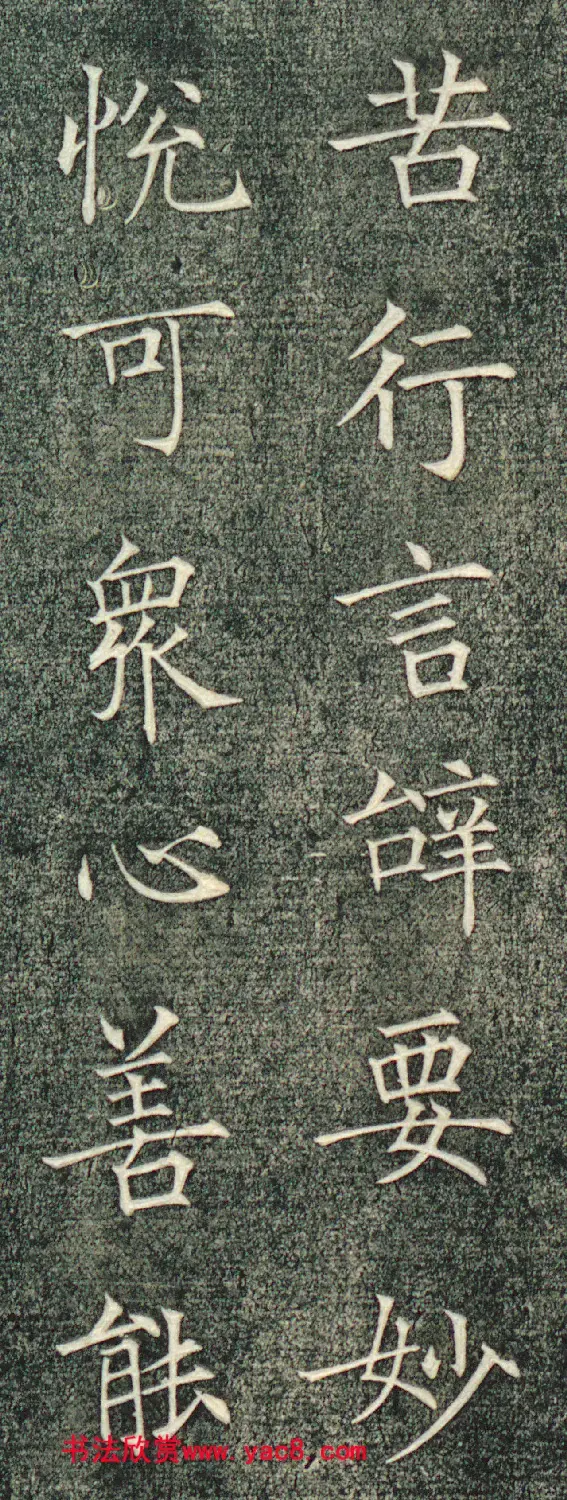 苦行言辞要妙
悦可眾心善能
书法欣赏www.yac8.com